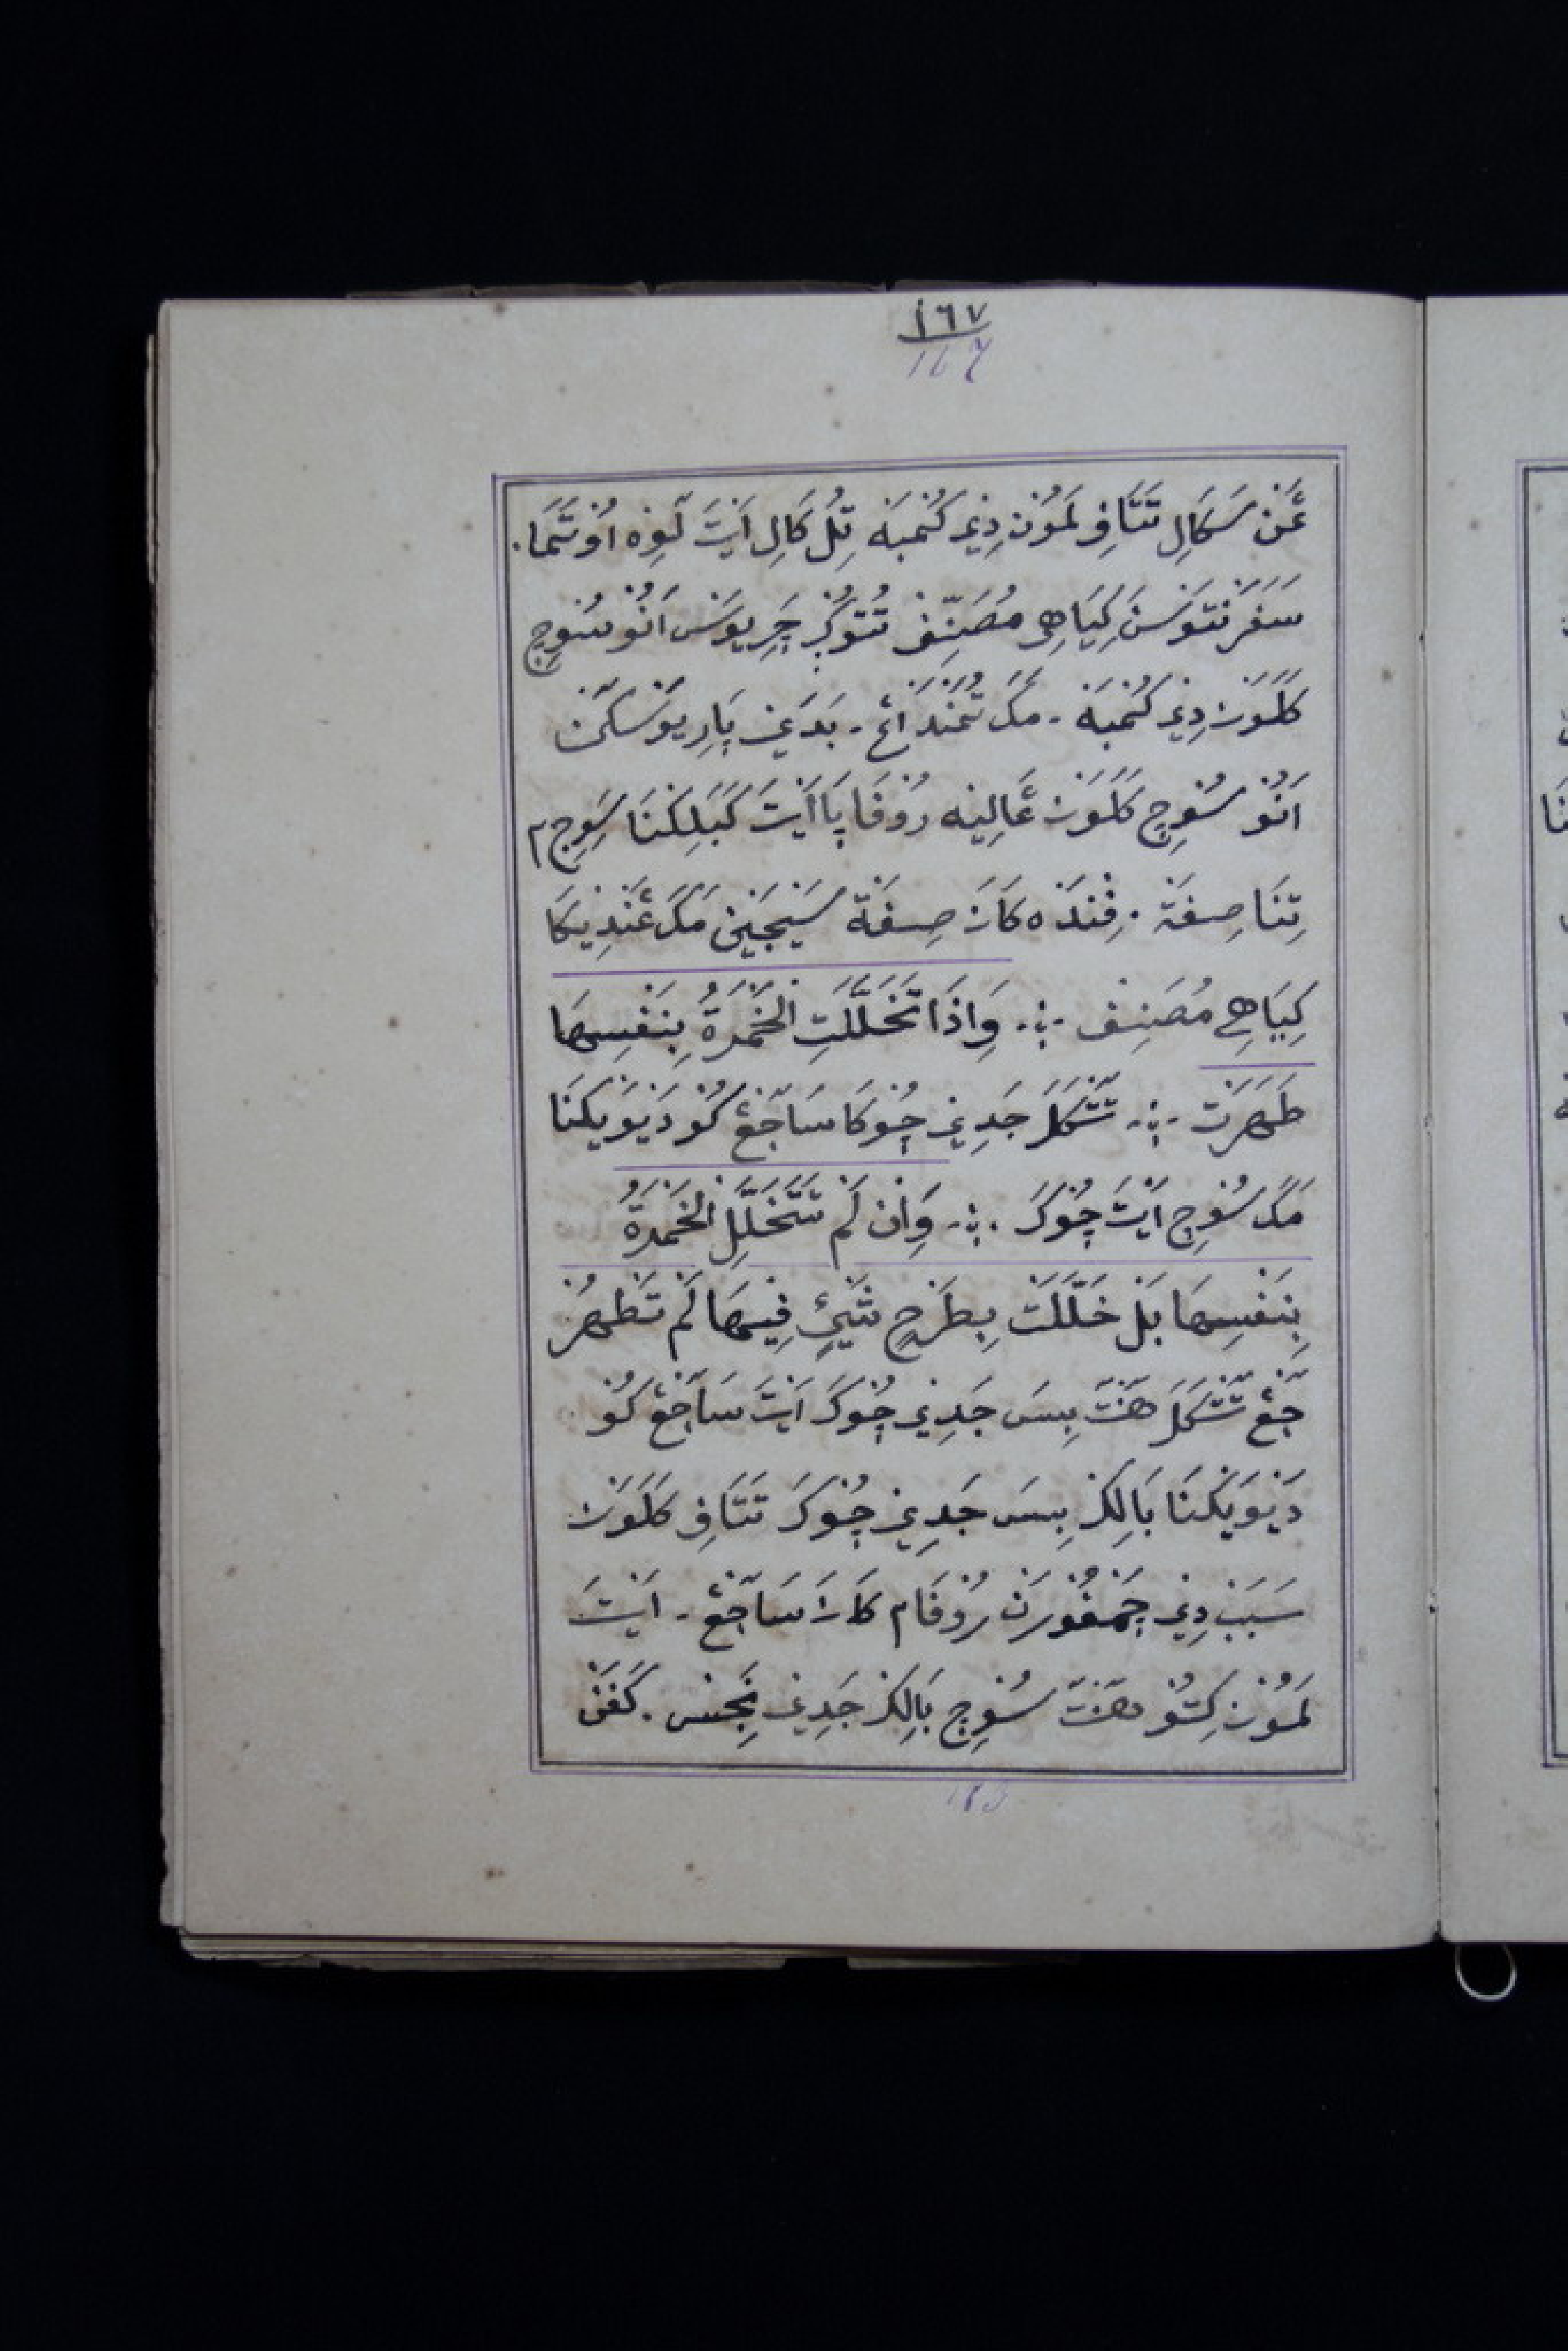 ١٦٧
167
عَنْ سَكَالِ تَتَافِ لَمُوْن دِيْ كُمْبَهْ تِلُ كَالِ اَيْتَ لَوِهْ اُوْتَمَا.
سَفَرْتَوْسَنْ كِيَاهِي مُصَنِّفْ تُتُوْكَرْ چَرِيُوَسْ اَنُوْ سُوْچِ
كَلَوَنْ دِيْ كُمْبَهْ ۔ مَكَ تُمَنْدَاغْ ۔ بَدَيْ پَارِيُوْسَكَنْ
اَنُوْ سُوْچِ كَلَوَنْ عَالِيْهْ رُوْفَا پَا اَيْتَ كَبَلِكَنَا سُوْچِ ٢
تِنَا صِفَةْ . فِنْدَهْ كَارَ صِفَةْ سَيْجَيْنْ مَكَ عَنْدِيْكَا
كِيَاهِي مُصَنِفْ ۔:۔ وَاِذَا تَخَلَّلَتِ الْخَمْرَةُ بِنَفْسِهَا
طَهَرَتْ ۔:۔ تَتْكَلَ جَدِيْ چُوْكَا سَاجَڠْ كُوْ دَيْوَيْكَنَا
مَكَ سُوْچِ اَيْتَ چُوْكَرَ .:۔ وَاِنْ لَمْ تَتَخَلَّلِ الْخَمْرَةُ
بِنَفْسِهَا بَلْ خَلَّلَتْ بِطَرْحِ شَيْئٍ فِيْهَا لَمْ تَطْهُرْ
جَڠْ تَتْكَلَ هَنْتَ بِسَ جَدِيْ چُوْكَرَ اَيْتَ سَاجَڠْ كُوْ
دَيْوَيْكَنَا بَالِكَرْ بِسَ جَدِيْ چُوْكَرَ تَتَافِ كَلَوَنْ
سَبَبْ دِيْ چَمْفُوْرَنْ رُوْفَام كَارَ سَاجَڠْ ۔ اَيْتَ
لَمُوْن كِتُوْ هَنْتَ سُوْچِ بَالِكَرْ جَدِيْ نَجِسْ . كَفَنْ